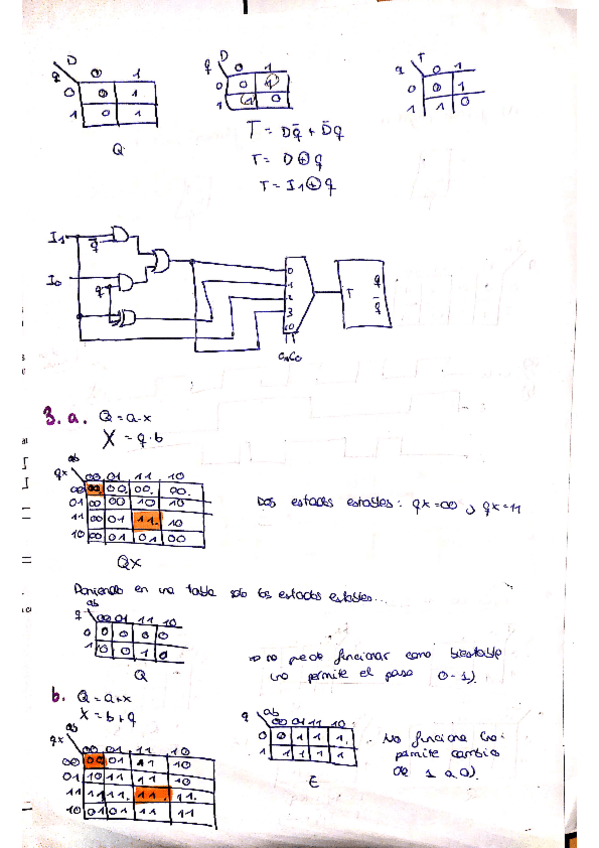 D
q 0 1
0 0 1
1 0 1
Q
D
q 0 1
0 0 1
1 1 0
T = Dq̄ + D̄q
T = D⊕q
T = I1⊕q
T
q 0 1
0 0 1
1 1 0
I1
q̄
I0
q
0
1
2
3
T
q
q̄
C1C0
3. a. Q = a·x
X = q·b
ab
qx 00 01 11 10
00 00 00. 00. 00.
01 00 00 10 10
11 00 01 11. 10
10 00 01 01 00
QX
Dos estados estables: qx=00, qx=11
Poniendo en una tabla sólo los estados estables...
ab
q 00 01 11 10
0 0 0 0 0
1 0 0 1 0
Q
⇒ no puedo funcionar como biestable
(no permite el paso 0-1).
b. Q = a+x
X = b+q
ab
qx 00 01 11 10
00 00 01 11 10
01 10 11 11 10
11 11 11. 11. 11.
10 01 01 11 11
q ab
00 01 11 10
0 0 1 1 1.
1 1 1 1 1.
E
. No funciona (no
permite cambio
de 1 a 0).